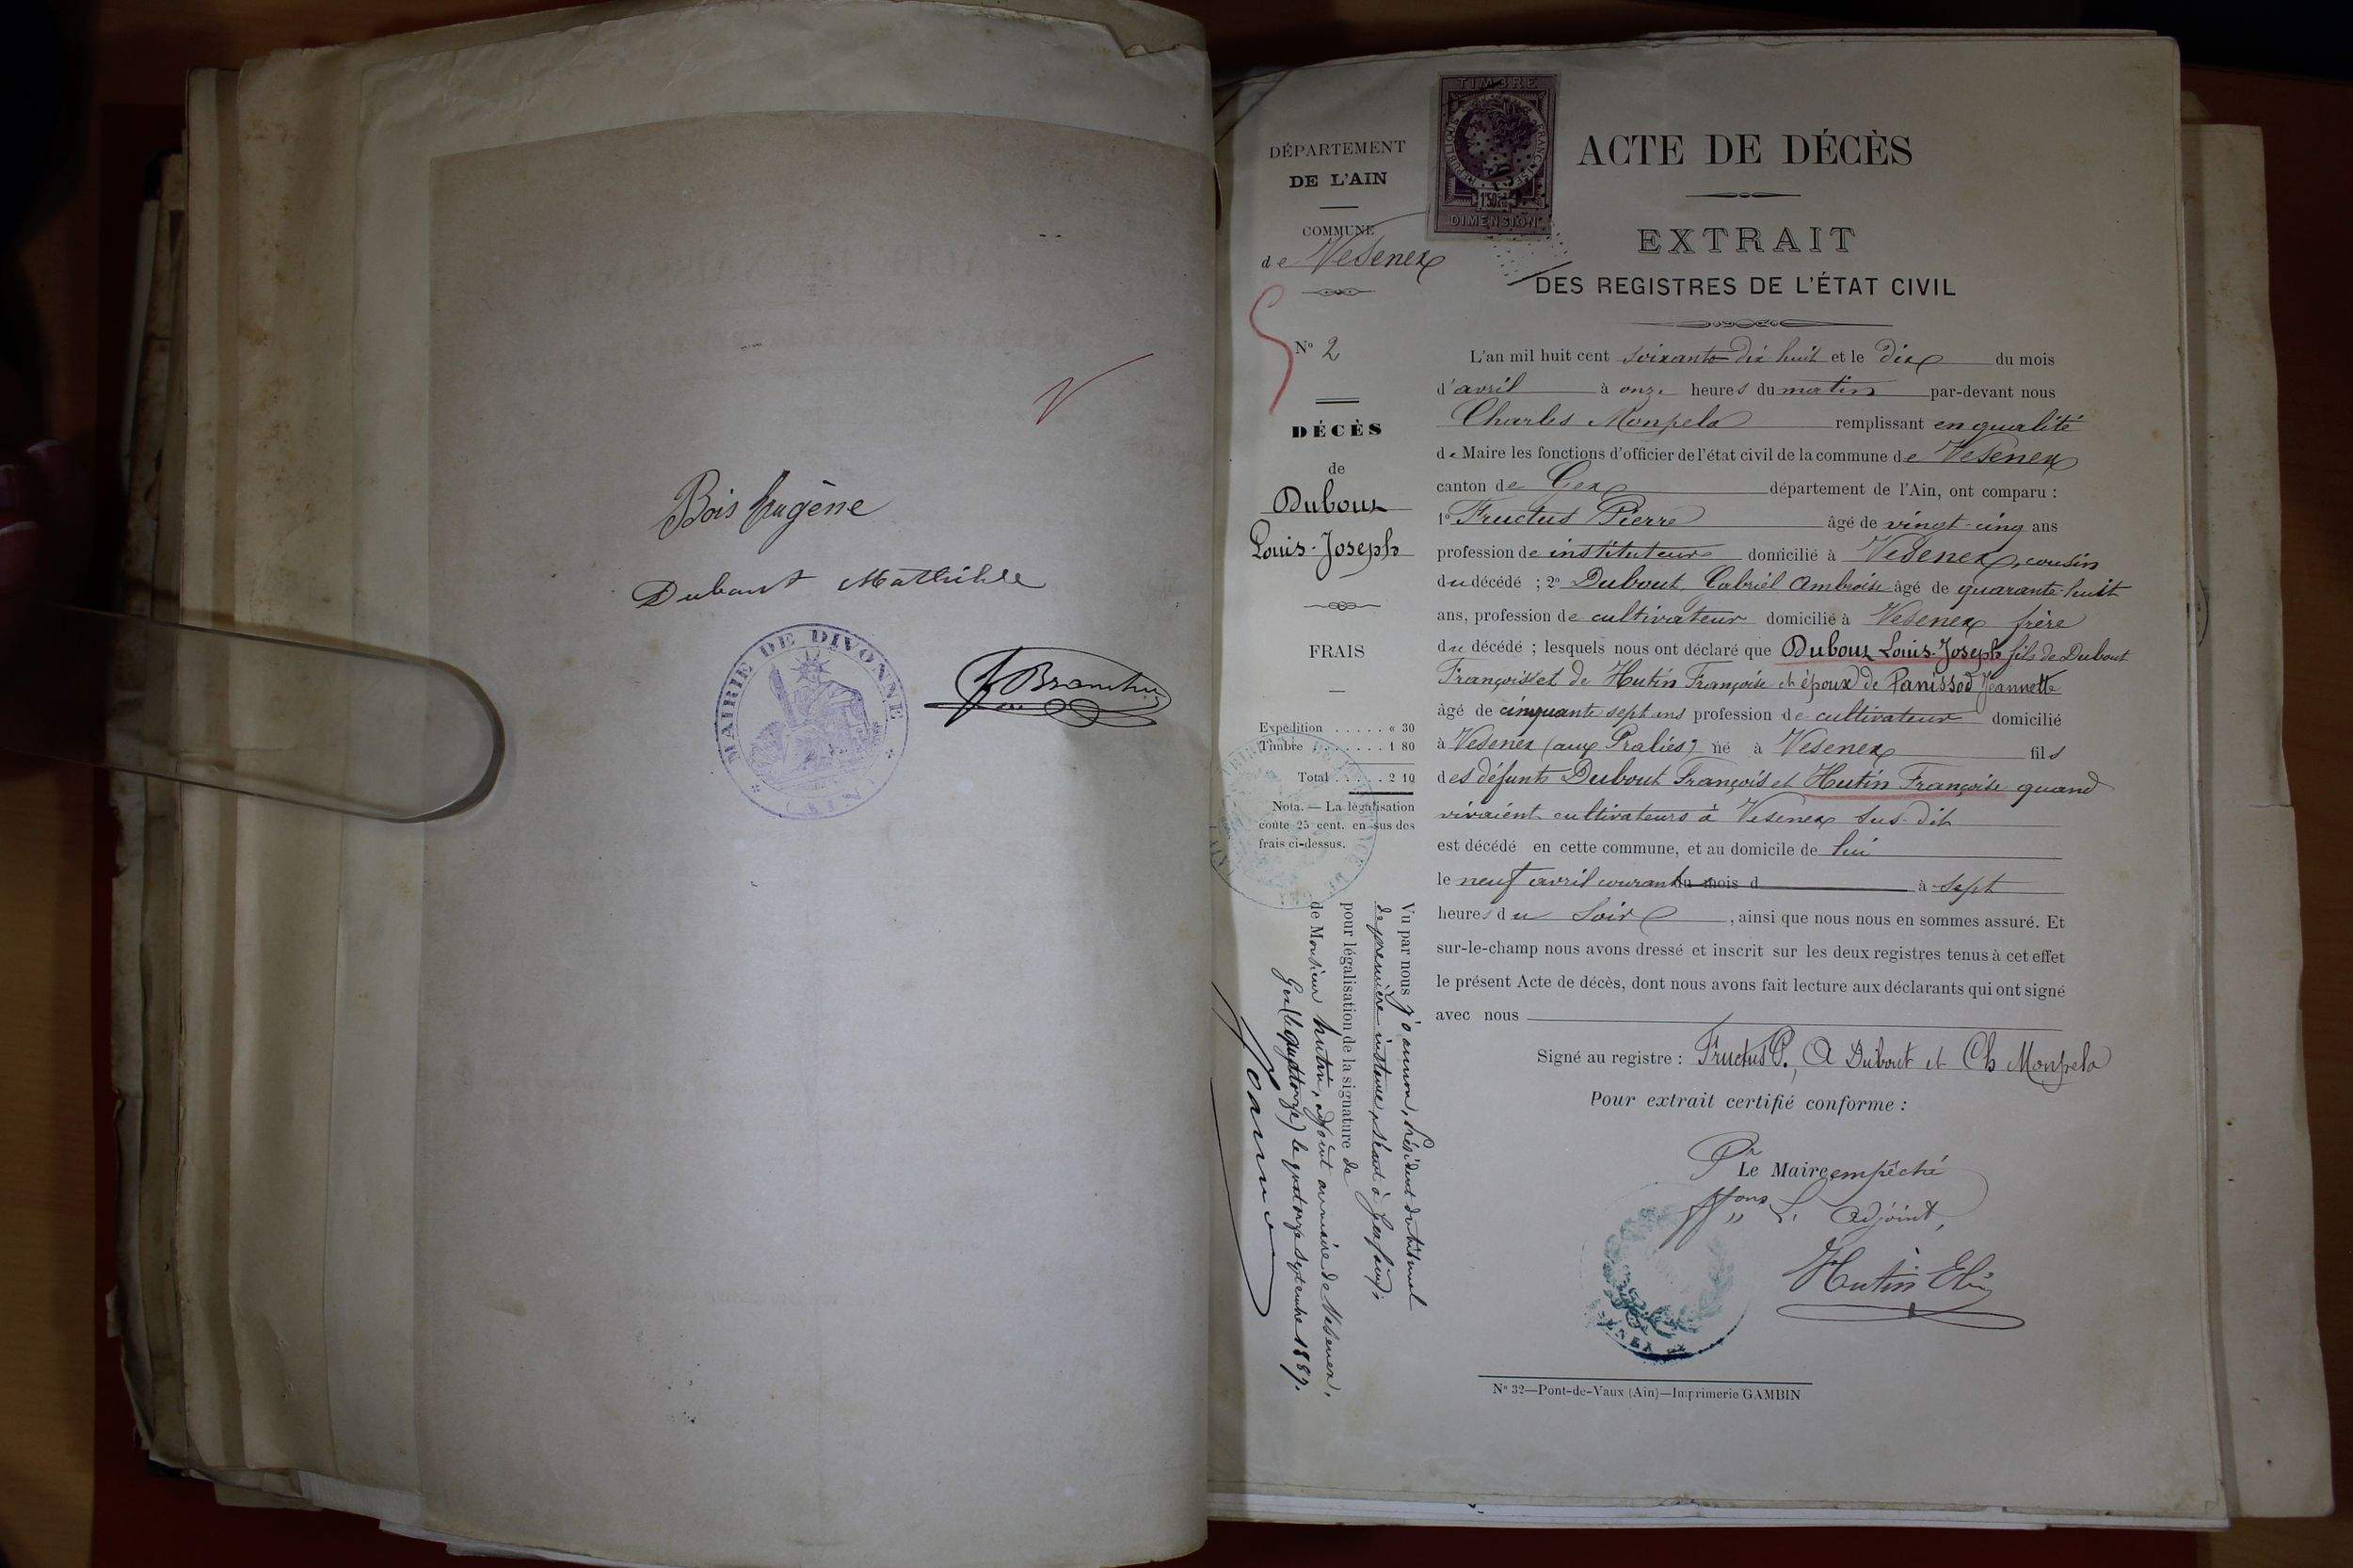 Bois Eugène
Dubout Mathilde
MAIRIE DE DIVONNE
(AIN)
TIMBRE
RÉPUBLIQUE FRANÇAISE
DIMENSION
DÉPARTEMENT
DE L'AIN
COMMUNE
de Vesenex
No 2
DÉCÈS
de
Dubouz
Louis-Joseph
FRAIS
Expédition ..... « 30
Timbre ....... 1 80
Total ..... 2 10
Nota. — La légalisation
coûte 25 cent. en sus des
frais ci-dessus.
Vu par nous Joannon, Président du tribunal
de première instance, séant à Gex
pour légalisation de la signature de
de Monsieur Hutin, adjoint au maire de Vesenex.
Gex le quatorze septembre 1889.
Joannon
ACTE DE DÉCÈS
EXTRAIT
DES REGISTRES DE L'ÉTAT CIVIL
L'an mil huit cent soixante dix huit et le dix du mois
d'avril à onze heures du matin par-devant nous
Charles Monpela remplissant en qualité
de Maire les fonctions d'officier de l'état civil de la commune de Vesenex
canton de Gex département de l'Ain, ont comparu :
1o Fructus Pierre âgé de vingt-cinq ans
profession de instituteur domicilié à Vesenex, cousin
du décédé ; 2o Dubout Gabriel Ambroise âgé de quarante-huit
ans, profession de cultivateur domicilié à Vesenex frère
du décédé ; lesquels nous ont déclaré que Dubouz Louis-Joseph fils de Dubout
François et de Hutin Françoise et époux de Panissod Jeannette
âgé de cinquante sept ans profession de cultivateur domicilié
à Vesenex (aux Praliés) né à Vesenex fils
des défunts Dubout François et Hutin Françoise quand
vivaient cultivateurs à Vesenex sus-dit
est décédé en cette commune, et au domicile de lui
le neuf avril courant du mois d à sept
heures du soir, ainsi que nous nous en sommes assuré. Et
sur-le-champ nous avons dressé et inscrit sur les deux registres tenus à cet effet
le présent Acte de décès, dont nous avons fait lecture aux déclarants qui ont signé
avec nous
Signé au registre : Fructus P., A Dubout et Ch Monpela
Pour extrait certifié conforme :
Pr Le Maire empêché
L' adjoint,
Hutin
No 32—Pont-de-Vaux (Ain)—Imprimerie GAMBIN